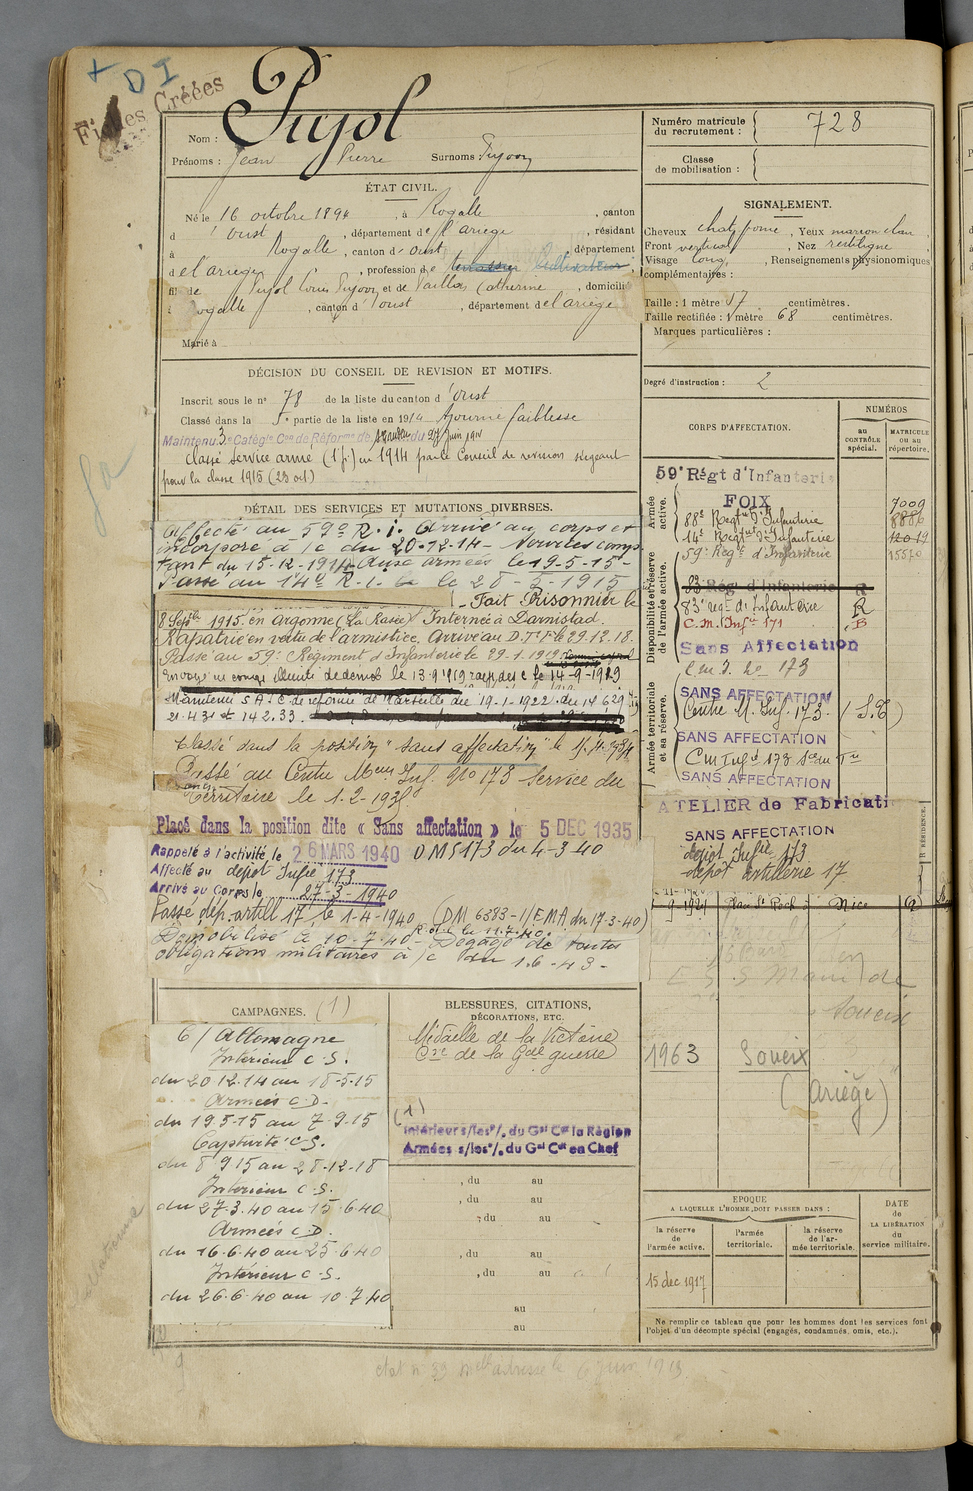 + D I
Fiches Créées
Nom : Pujol
Prénoms : Jean Pierre Surnoms Pujoou
ÉTAT CIVIL.
Né le 16 octobre 1894, à Rogalle, canton
d'Oust, département de l'ariège, résidant
à Rogalle, canton d'oust, département
de l'ariège, profession de terrassier Cultivateur,
fils de Pujol Louis Pujoou et de Paillas Catherine, domiciliés
à Rogalle, canton d'oust, département de l'ariège
Marié à
DÉCISION DU CONSEIL DE REVISION ET MOTIFS.
Inscrit sous le n° 78 de la liste du canton d'oust
Classé dans la 5e partie de la liste en 1914 Ajourné faiblesse
Maintenu 3e Catégie Con de Réforme de du 27 juin 191
Classé Service armé (1 p.) en 1914 par le Conseil de revision siégeant
pour la classe 1915 (23 oct)
DÉTAIL DES SERVICES ET MUTATIONS DIVERSES.
Affecté au 59e R.I. Arrivé au corps et
incorporé à /c du 20-12-14 - Services comp
tant du 15-12-1914 Aux armées le 19-5-15 -
Passé au 14e R.I. le 20-5-1915
- Fait Prisonnier le
8 Septbre 1915. en Argonne (La Harazée) Interné à Darmstad.
Rapatrié en vertu de l'armistice, arrivé au D.T. le 29.12.18.
Passé au 59e Régiment d'Infanterie le 29-1-1919
Envoyé en congé illimité de démob le 13.9.1919 le 14-9-1919
Maintenu S.A. C de réforme de Marseille du 19-1-1922, du 14 6 29
21.4.31 et 14.2.33.
Classé dans la position "sans affectation" le 15.4.1934
Passé au Centre Mseur Inf. Gio 173 Service du
Territoire le 1.2-1935
Placé dans la position dite « Sans affectation » le 5 DEC 1935
Rappelé à l'activité le 26 MARS 1940 DM 5173 du 4-3-40
Affecté au dépot Infie 173
Arrivé au Corps le 27-3-1940
Passé dép. artill 17 le 1-4-1940 (DM 6383-1/EMA du 17-3-40)
Démobilisé le 10-7-40 - Dégagé de toutes
obligations militaires à /c du 1.6-43-
CAMPAGNES. (1)
C/ Allemagne
Intérieur C.S.
du 20.12.14 au 18-5-15
Armées C.D.
du 19.5-15 au 7-9.15
Captivité C.S.
du 8 9 15 au 28-12-18
Intérieur C.S.
du 27.3.40 au 15-6.40
Armées C.D.
du 16-6.40 au 25-6.40
Intérieur C.S.
du 26.6.40 au 10.7.40
BLESSURES, CITATIONS,
DÉCORATIONS, ETC.
Médaille de la Victoire
Cve de la Gde guerre
(1)
Intérieur s/les °/. du Gal Cdt la Région
Armées s/les °/. du Gal Cdt en Chef
, du au
, du au
, du au
, du au
, du au
au
au
Numéro matricule
du recrutement : 728
Classe
de mobilisation :
SIGNALEMENT.
Cheveux chat foncé, Yeux marron clair,
Front vertical, Nez rectiligne,
Visage long, Renseignements physionomiques
complémentaires :
Taille : 1 mètre 57 centimètres.
Taille rectifiée : 1 mètre 68 centimètres.
Marques particulières :
Degré d'instruction : 2
CORPS D'AFFECTATION.
NUMÉROS
au
CONTRÔLE
spécial.
MATRICULE
ou au
répertoire.
Armée
active.
Disponibilité et réserve
de l'armée active.
Armée territoriale
et sa réserve.
59e Régt d'Infanterie
FOIX 7009
88e Regt d'Infanterie 8806
14e Regt d'Infanterie 12019
59e Regt d'Infanterie 15570
83 Rég d'Infanterie R
83e regt d'Infanterie R
C.M. Infie 171 B
Sans Affectation
C.M.I. 20 173
SANS AFFECTATION
Centre M. Inf. 173 (S.T.)
SANS AFFECTATION
C M Inf 173 Sce du Tre
SANS AFFECTATION
ATELIER de Fabricati
SANS AFFECTATION
dépot Infie 173
dépot artillerie 17
R RÉSIDENCE.
Nice
Soueix
1963 Soueix
(Ariège)
EPOQUE
A LAQUELLE L'HOMME DOIT PASSER DANS :
la réserve
de
l'armée active.
l'armée
territoriale.
la réserve
de l'ar-
mée territoriale.
DATE
de
LA LIBÉRATION
du
service militaire.
15 dec 1917
Ne remplir ce tableau que pour les hommes dont les services font
l'objet d'un décompte spécial (engagés, condamnés, omis, etc.).